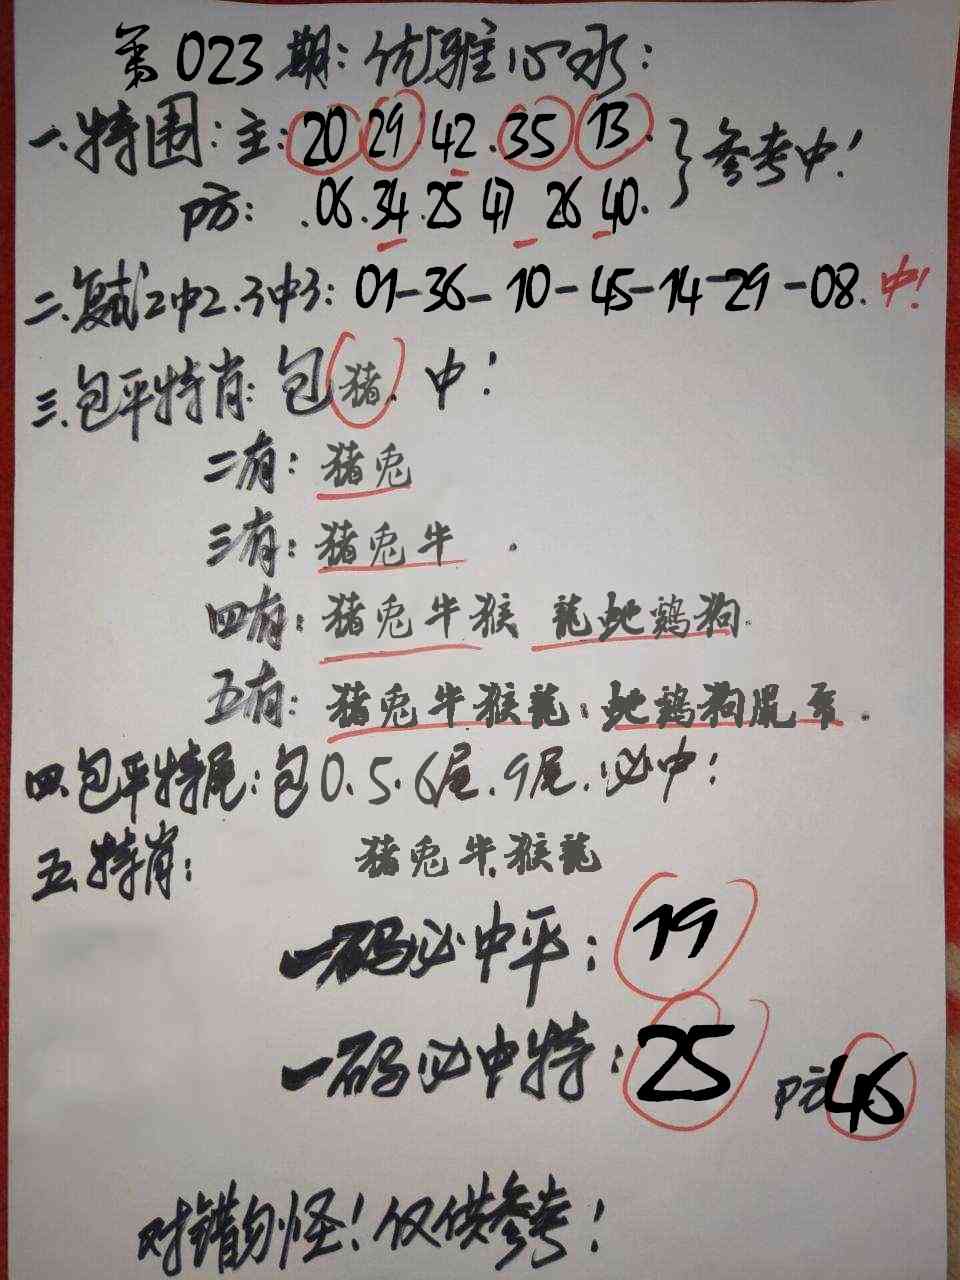 第023期：优雅心水：
一.特围：主：20 29.42.35 13.
防：.06.34.25 47 26 40.
}参考中！
二.复试2中2.3中3：01-36-10-45-14-29-08.中！
三.包平特肖：包猪.中！
二有：猪兔
三有：猪兔牛.
四有：猪兔牛猴 龍蛇鷄狗.
五有：猪兔牛猴龍：蛇鷄狗鼠.
四.包平特尾：包0.5.6尾.9尾.必中！
五.特肖：猪兔牛.猴龍
一码必中平：19
一码必中特：25 防46
对错勿怪！仅供参考！